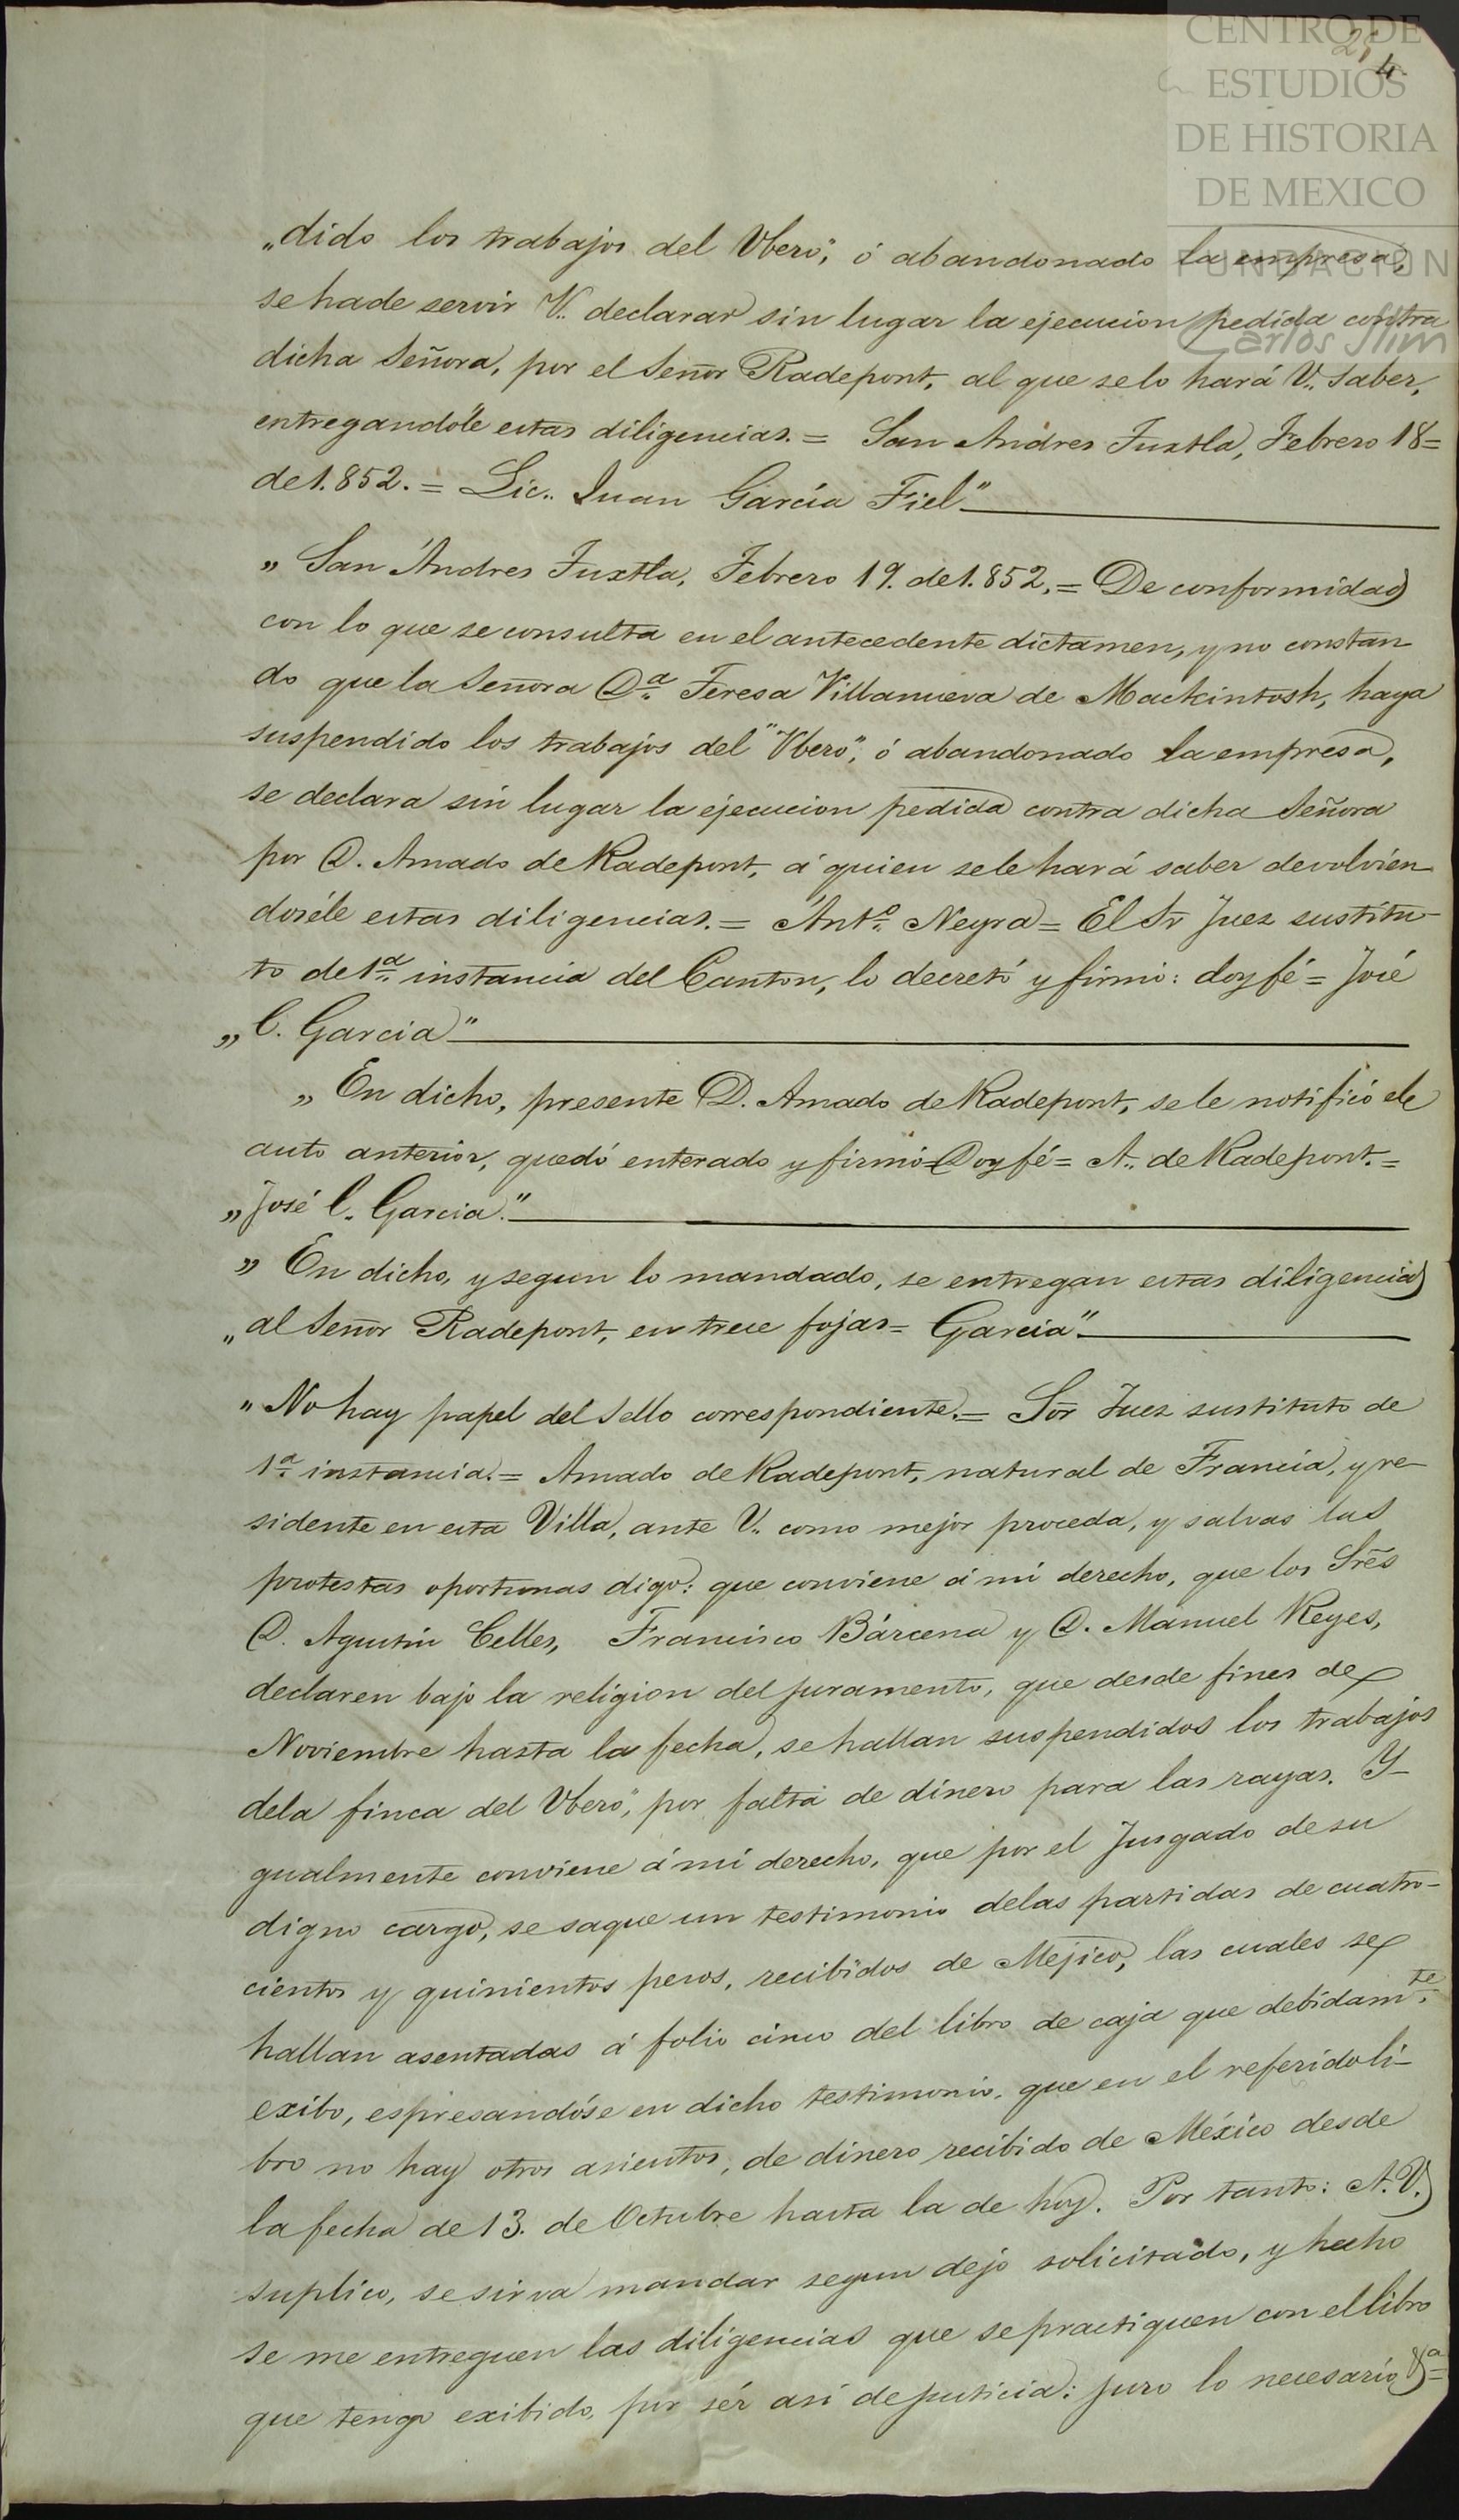 CENTRO DE
ESTUDIOS
DE HISTORIA
DE MEXICO
FUNDACION
Carlos Slim
4.
„dido los trabajos del Vbero”, ó abandonado la empresa,
se hade servir V. declarar sin lugar la ejecucion pedida contra
dicha Señora, por el Señor Radepont, al que selo hará V. saber,
entregandóle estas diligencias. = San Andres Tuxtla, Febrero 18=
de 1.852. = Lic. Juan García Fiel”
„ San Andres Tuxtla, Febrero 19. de 1.852. = De conformidad
con lo que se consulta en el antecedente dictamen, y no constan
do que la Señora Dª Teresa Villanueva de Mackintosh, haya
suspendido los trabajos del “Vbero”, ó abandonado la empresa,
se declara sin lugar la ejecucion pedida contra dicha Señora
por D. Amado de Radepont, á quien sele hará saber devolvien
doséle estas diligencias. = Antº Neyra = El Sr Juez sustitu-
to de 1ª instancia del Canton, lo decretó y firmó: doy fé = José
„C. Garcia”
„ En dicho, presente D. Amado de Radepont, se le notificó el
auto anterior, quedó enterado y firmó=Doy fé = A. de Radepont. =
„José C. Garcia.”
„ En dicho, y segun lo mandado, se entregan estas diligencias
„al Señor Radepont, en trece fojas = Garcia”
„No hay papel del sello correspondiente. = Sor Juez sustituto de
1ª instancia. = Amado de Radepont, natural de Francia, y re-
sidente en esta Villa, ante V. como mejor proceda, y salvas las
protestas oportunas digo: que conviene á mi derecho, que los Sres
D. Agustin Celles, Francisco Bárcena y D. Manuel Reyes,
declaren bajo la religion del juramento, que desde fines de
Noviembre hasta la fecha, se hallan suspendidos los trabajos
dela finca del Vbero”, por falta de dinero para las rayas. Y-
gualmente conviene á mi derecho, que por el Jusgado de su
digno cargo, se saque un testimonio delas partidas de cuatro-
cientos y quinientos pesos, recibidos de Mejico, las cuales se
hallan asentadas á folio cinco del libro de caja que debidamte
exibo, espresandóse en dicho testimonio, que en el referido li-
bro no hay otros asientos, de dinero recibido de México desde
la fecha de 13. de Octubre hasta la de hoy. Por tanto: A. V.
suplico, se sirva mandar segun dejo solicitado, y hecho
se me entreguen las diligencias que se practiquen con el libro
que tengo exibido, por sér asi de justicia: juro lo necesario &ª=